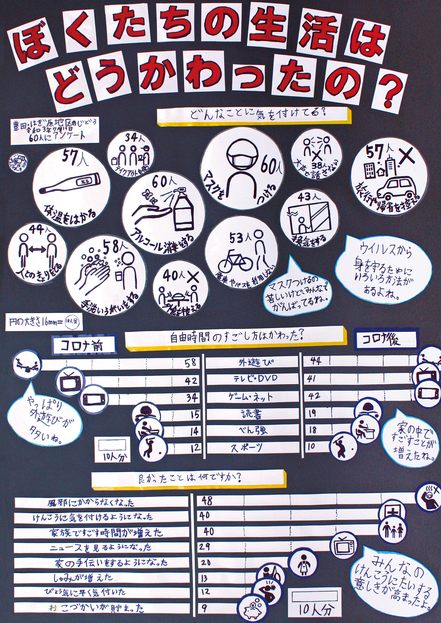 ぼくたちの生活は
どうかわったの?
60人にアンケート
どんなことに気を付けてる?
57人
体温をはかる
34人
60人
アルコール消毒をする
マスクを
つける
60人
38人
57人
44人
58人
手洗いうがいをする
40人
53人
43人
換気をする
ウイルスから
身を守るために
いろいろ方法が
あるよね。
マスクつけるの
苦しいけど、みんなで
がんばってるね。
円の大きさ16mm=10人分
自由時間のすごし方はかわった?
コロナ前
コロナ後
58 外遊び 44
42 テレビ・DVD 41
34 ゲーム・ネット 42
15 読書 19
14 べん強 18
12 スポーツ 10
やっぱり
外遊びが
多いね。
家の中で
すごすことが
増えたね。
10人分
良かったことは何ですか?
風邪にかからなくなった 48
けんこうに気を付けるようになった 40
家族ですごす時間が増えた 40
ニュースを見るようになった 29
家の手伝いをするようになった 20
しゅみが増えた 13
びょう気に早く気付いた 12
おこづかいが貯まった 9
10人分
みんなの
けんこうにたいする
意しきが高まったよ。